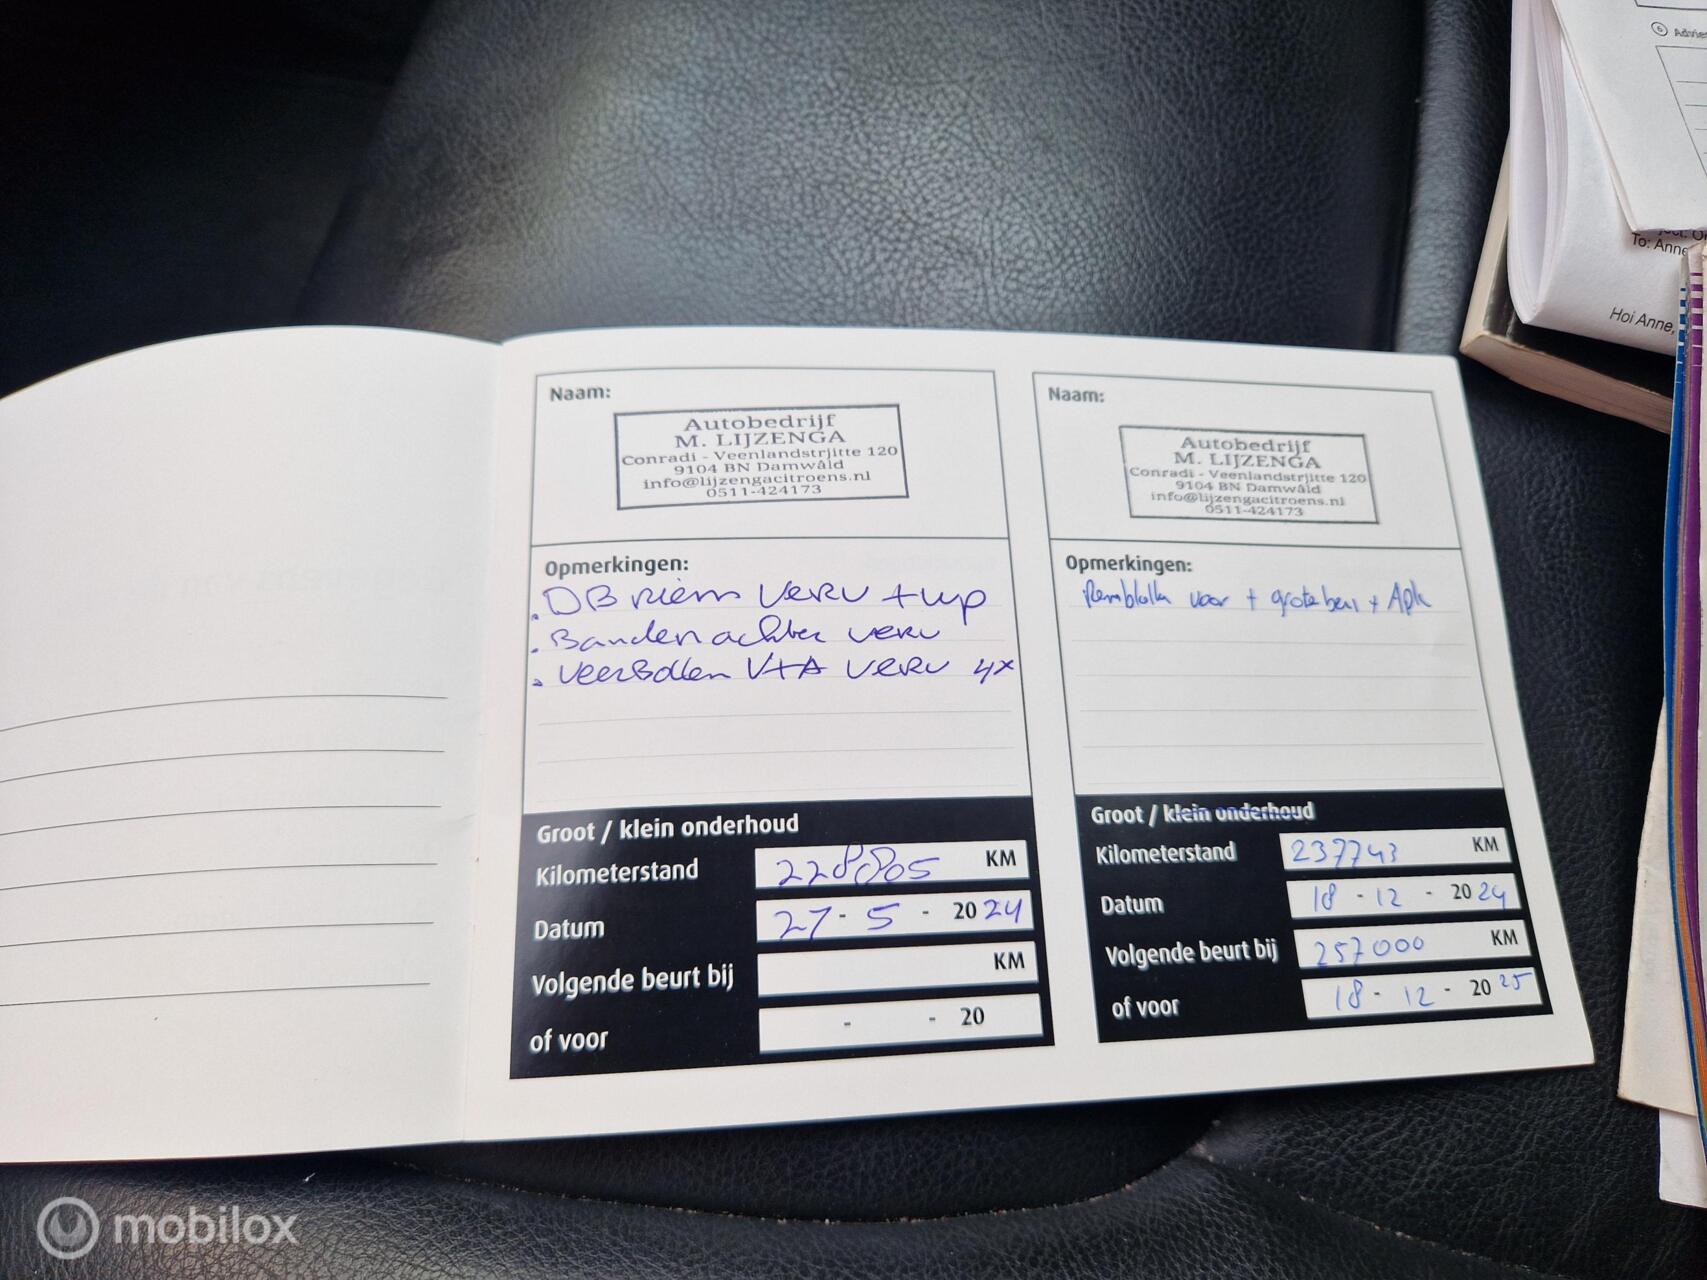 Naam:
Autobedrijf
M. LIJZENGA
Conradi - Veenlandstrjitte 120
9104 BN Damwâld
info@lijzengacitroens.nl
0511-424173
Opmerkingen:
. DB riem VERV + wp
. Banden achter verv
. Veerbollen V+A VERV 4x
Groot / klein onderhoud
Kilometerstand 228805 KM
Datum 27 - 5 - 2024
Volgende beurt bij KM
of voor - - 20
Naam:
Autobedrijf
M. LIJZENGA
Conradi - Veenlandstrjitte 120
9104 BN Damwâld
info@lijzengacitroens.nl
0511-424173
Opmerkingen:
Remblokken voor + grote beurt + Apk
Groot / klein onderhoud
Kilometerstand 237743 KM
Datum 18 - 12 - 2024
Volgende beurt bij 257000 KM
of voor 18 - 12 - 2025
To: Anne
Hoi Anne,
mobilox